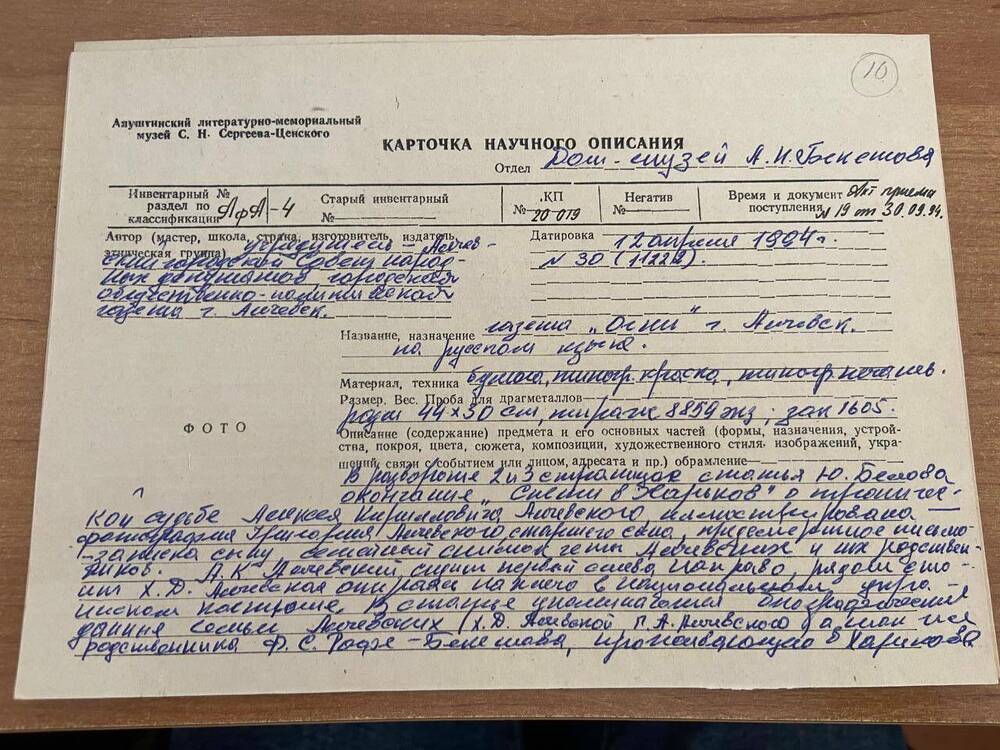 10.
Алуштинский литературно-мемориальный
музей С. Н. Сергеева-Ценского
КАРТОЧКА НАУЧНОГО ОПИСАНИЯ
Отдел Дом-музей А.Н. Бекетова
Инвентарный №
раздел по
классификации АфА-4
Старый инвентарный
№
КП
№ 20-019
Негатив
№
Время и документ Акт приема
поступления N 19 от 30.09.94.
Автор (мастер, школа, страна, изготовитель, издатель,
этническая группа) учредитель - Алчев-
ский городской Совет народ-
ных депутатов, городская
общественно-политическая
газета г. Алчевск.
Датировка 12 апреля 1994 г.
N 30 (11222).
Название, назначение газета „Огни" г. Алчевск.
на русском языке.
Материал, техника бумага, типогр. краска, типогр. печать.
Размер. Вес. Проба для драгметаллов
разм 44×30 см, тираж 8859 экз; зак 1605.
ФОТО
Описание (содержание) предмета и его основных частей (формы, назначения, устрой-
ства, покроя, цвета, сюжета, композиции, художественного стиля, изображений, укра-
шений, связи с событием или лицом, адресата и пр.) обрамление
В развороте 2 и 3 страницах статья Ю. Белова
окончание „ в Харьков" о трагичес-
кой судьбе Алексея Кирилловича Алчевского иллюстрирована
фотография Григория Алчевского, старшего сына, предсмертное письмо
-записка сыну, семейный снимок четы Алчевских и их родствен-
ников. А.К. Алчевский сидит первый слева направо, рядом сто-
ит Х.Д. Алчевская опираясь на него в национальном укра-
инском костюме. В статье упоминаются биографические
данные семьи Алчевских (Х.Д. Алчевской Г.А. Алчевского а также
родственника Ф.С. -Бекетова, проживающего в Харькове